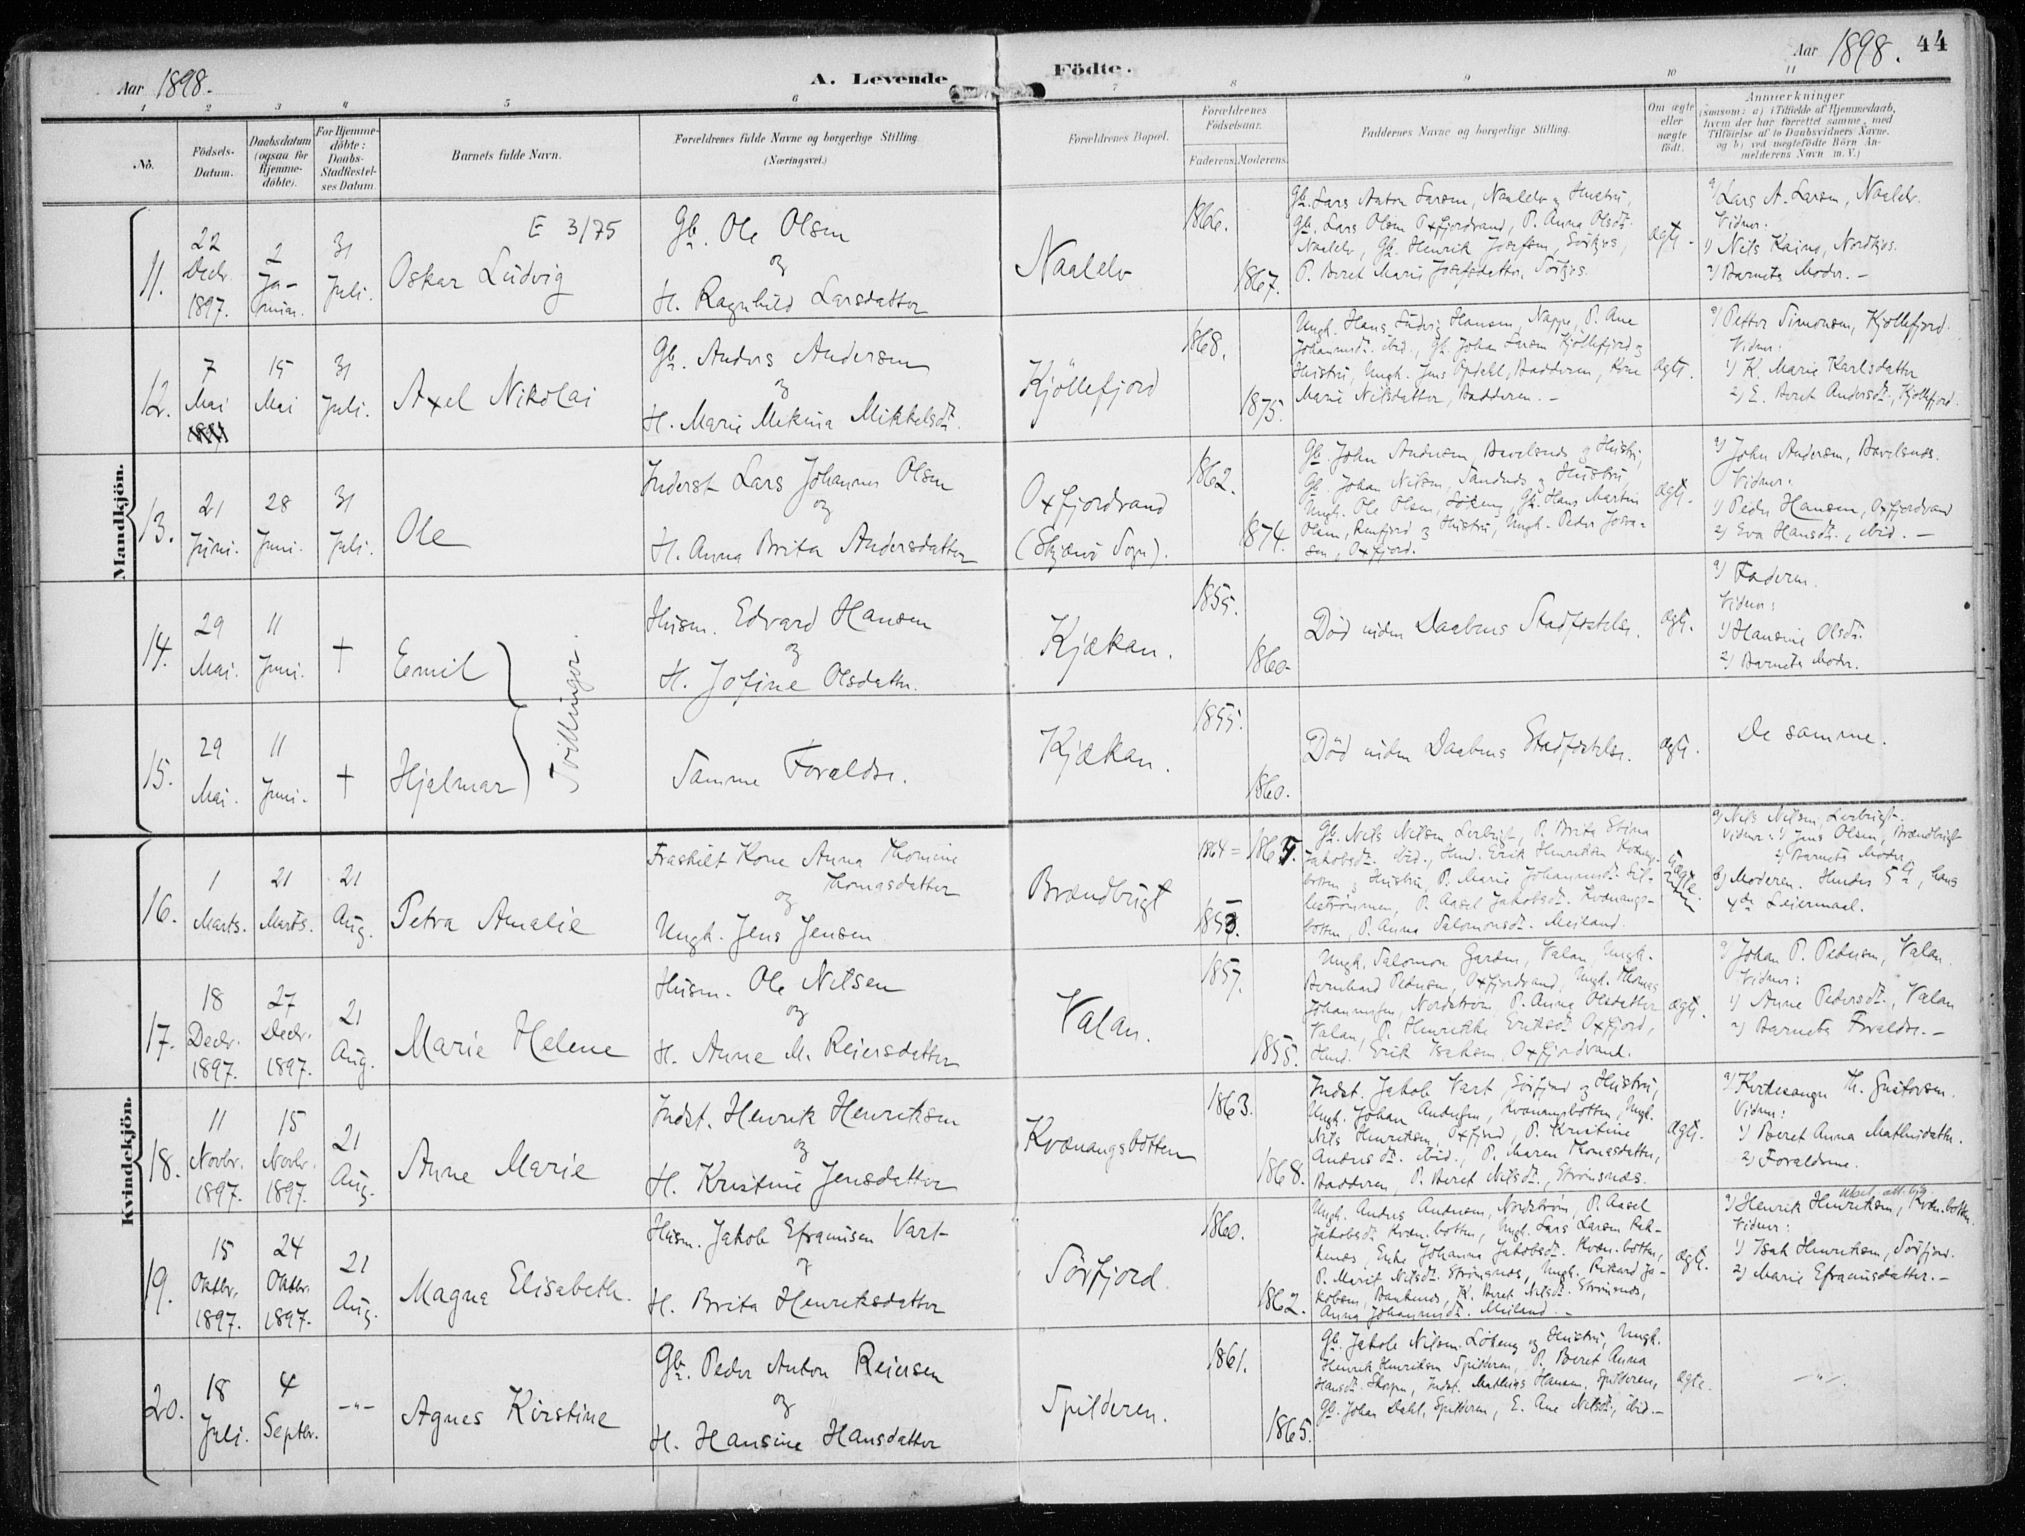 Aar 1898.
A. Levende
Födte.
Aar 1898. 44
1 2 3 4 5 6 7 8 9 10 11
No.
Födsels-
Datum.
Daabsdatum
(ogsaa for
Hjemme-
döbte).
For Hjemme-
döbte:
Daabs-
Stadfæstel-
ses Datum.
Barnets fulde Navn.
Forældrenes fulde Navne og borgerlige Stilling
(Næringsvei.)
Forældrenes Bopæl.
Forældrenes
Födselsaar.
Faderens. Moderens.
Faddernes Navne og borgerlige Stilling.
Om ægte
eller
uægte
födt.
Anmærkninger
(saasom: a) i Tilfælde af Hjemmedaab,
hvem der har forrettet samme, med
Tilföielse af to Daabsvidners Navne.
og b) ved uægtefödte Börn An-
melderens Navn m. V.)
Mandkjön.
11.
22
Decbr.
1897.
2
Ja-
nuar.
31
Juli.
E 3/75
Oskar Ludvig
Gb. Ole Olsen
og
H. Ragnhild Larsdatter
Naalelv
1866.
1867.
Gb. Lars Anton Larsen, Naalelv og Hustru,
Gb. Lars Olsen Oxfjordvand, P. Anna Olsdt.
Naalelv, Gb. Henrik Josefsen, Sörkjos,
P. Beret Marie Josefsdatter, Sörkjos.
ægte.
a) Lars A. Larsen, Naalelv.
Vidner:
1) Nils Kaino, Nordkjos.
2) Barnets Moder. -
12.
7
Mai
15
Mai
31
Juli.
Axel Nikolai
Gb. Anders Andersen
og
H. Marie Mekina Mikkelsdt.
Kjöllefjord
1868.
1875.
Ungk. Hans Ludvig Hansen, Nappe, P. Ane
Johannesdt. ibid., Gb. Johan Larsen Kjöllefjord og
Hustru, Ungk. Jens Opdahl, Badderen, Kone
Marie Nilsdatter, Badderen. -
ægte.
a) Petter Simonsen, Kjöllefjord.
Vidner:
1) K. Marie Karlsdatter
2) E. Beret Andersdt., Kjöllefjord.
13.
21
Juni.
28
Juni.
31
Juli.
Ole
Inderst Lars Johannes Olsen
og
H. Anna Brita Andersdatter
Oxfjordvand
(Skjervö Sogn).
1862.
1874.
Gb. John Andersen, Bavelsnes og Hustru,
Gb. Johan Nilsen, Sandnes og Hustru,
Ungk. Ole Olsen, Lökeng, Gb. Hans Martin
Olsen, Renfjord og Hustru, Ungk. Peder Josva-
sen, Oxfjord.
ægte.
a) John Andersen, Bavelsnes.
Vidner:
1) Peder Hansen, Oxfjordvand
2) Eva Hansdt., ibid. -
14.
29
Mai.
11
Juni.
+
Emil
Tvillinger.
Husm. Edvard Hansen
og
H. Josine Olsdatter.
Kjækan.
1855.
1860.
Död uden Daabens Stadfæstelse.
ægte.
a) Faderen.
Vidner:
1) Hansine Olsdt.
2) Barnets Moder.
15.
29
Mai.
11
Juni.
+
Hjalmar
Samme Foreldre.
Kjækan.
1855.
1860.
Död uden Daabens Stadfæstelse.
ægte.
De samme.
Kvindekjön.
16.
1
Marts.
21
Marts.
21
Aug.
Petra Amalie
Fraskilt Kone Anna Thomine
Thomasdatter
og
Ungk. Jens Jensen
Brændbugt
1864 =
1853.
Gb. Nils Nilsen Lerbugt, P. Brita Stina
Jakobsdt. ibid., Hmd. Erik Henriksen Kvænangs-
botten og Hustru, P. Marie Johannesdt.
P. Aasel Jakobsdt. Kvænangs-
botten, P. Anna Salomonsdt. Meiland.
a) Nils Nilsen, Lerbugt.
Vidner: 1) Jens Olsen, Brændbugt
2) Barnets Moder
b) Moderen. Hendes 5te, hans
4de Leiermaal.
17.
18
Decbr.
1897.
27
Decbr.
1897.
21
Aug.
Marie Helene
Husm. Ole Nilsen
og
H. Anne M. Reiersdatter
Valan.
1857.
1855.
Ungk. Salomon Garden, Valan, Ungk.
Bernhard Pedersen, Oxfjordvand, Ungk. Thomas
Johannesen, Nordström, P. Anna Olsdatter
Valan, P. Henrikke Eriksdt. Oxfjord,
Hmd. Erik Isaksen, Oxfjordvand.
ægte.
a) Johan P. Pedersen, Valan.
Vidner:
1) Anne Pedersdt., Valan
2) Barnets Foreldre. -
18.
11
Novbr.
1897.
15
Novbr.
1897.
21
Aug.
Anne Marie
Indst. Henrik Henriksen
og
H. Kristine Jensdatter
Kvænangsbotten
1863.
1868.
Indst. Jakob Vart, Sörfjord og Hustru,
Ungk. Johan Andersen, Kvænangsbotten, Ungk.
Nils Henriksen, Oxfjord, P. Kristine
Andersdt. ibid., P. Maren Thomasdatter,
Badderen, P. Beret Nilsdt., Strömsnæs.
ægte.
a) Kirkesanger Th. Gustavsen.
Vidner:
1) Beret Anna Mathisdatter.
2) Foreldrene.
19.
15
Oktbr.
1897.
24
Oktbr.
1897.
21
Aug.
Magna Elisabeth.
Husm. Jakob Efraimsen Vart
og
H. Brita Henriksdatter
Sörfjord.
1860.
1862.
Ungk. Anders Andersen, Nordström, P. Aasel
Jakobsdt. Kvæn.botten, Ungk. Lars Larsen Rak-
kenæs, Enke Johanna Jakobsdt. Kvæn.botten,
P. Marit Nilsdt. Strömsnæs, Ungk. Rikard Ja-
kobsen, K. Beret Nilsdt. Strömsnæs,
Anna Johannesdt. Meiland. -
ægte.
a) Henrik Henriksen, Kvæn.botten.
Vidner:
1) Isak Henriksen, Sörfjord.
2) Marie Efraimsdatter. -
20.
18
Juli.
4
Septbr.
-"-
Agnes Kirstine
Gb. Peder Anton Reiersen
og
H. Hansine Hansdatter
Spilderen.
1861.
1865.
Gb. Jakob Nilsen Lökeng og Hustru, Ungk.
Henrik Henriksen Spilderen, P. Beret Anna
Hansdt. Skogen, Indst. Mathias Hansen, Spilderen,
Gb. Johan Dahl, Spilderen, E. Ane Nilsdt., ibid. -
ægte.
-"-